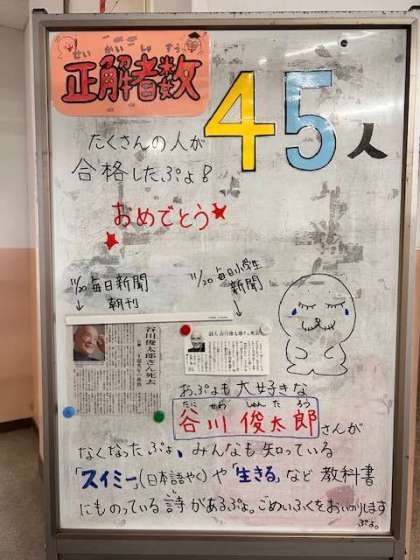 せい かい しゃ すう
正解者数
45人
たくさんの人が
合格したぷよ!
おめでとう
11/20 毎日新聞
朝刊
11/20 毎日小学生
新聞
谷川俊太郎さん死去
おぷよも大好きな
たに かわ しゅん た ろう
谷川 俊太郎さんが
なくなったぷよ、みんなも知っている
「スイミー」(日本語やく)や「生きる」など 教科書
にものっている詩があるぷよ。ごめいふくをおいのりします
ぷよ。